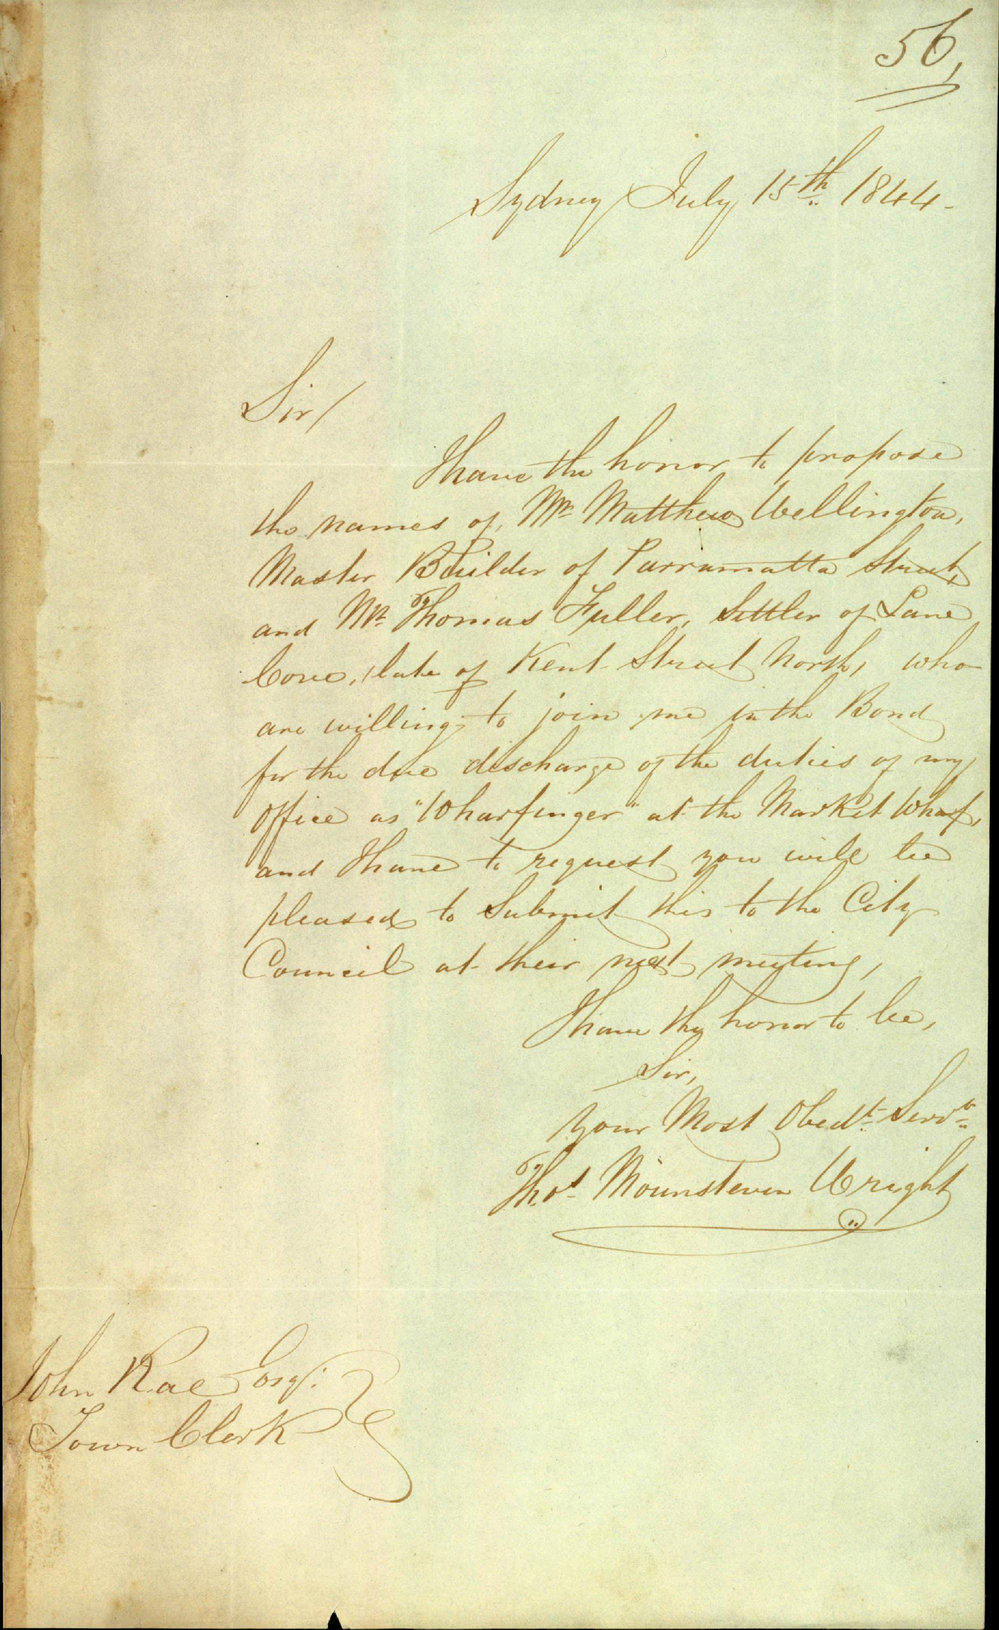 56,
Sydney July 15th 1844-
Sir/
I have the honor to propose
the names of, Mr Matthew Wellington,
Master Builder of Parramatta Street,
and Mr Thomas Fuller, Settler of Lane
Cove, late of Kent Street North, who
are willing to join me in the Bond
for the due discharge of the duties of my
office as "Wharfinger" at the Market Wharf,
and I have to request you will be
pleased to Submit this to the City
Council at their next meeting,
I have the honor to be,
Sir,
Your Most Obedt Servt
Thos Mounsteven Wright
John Rae Esqr:
Town Clerk